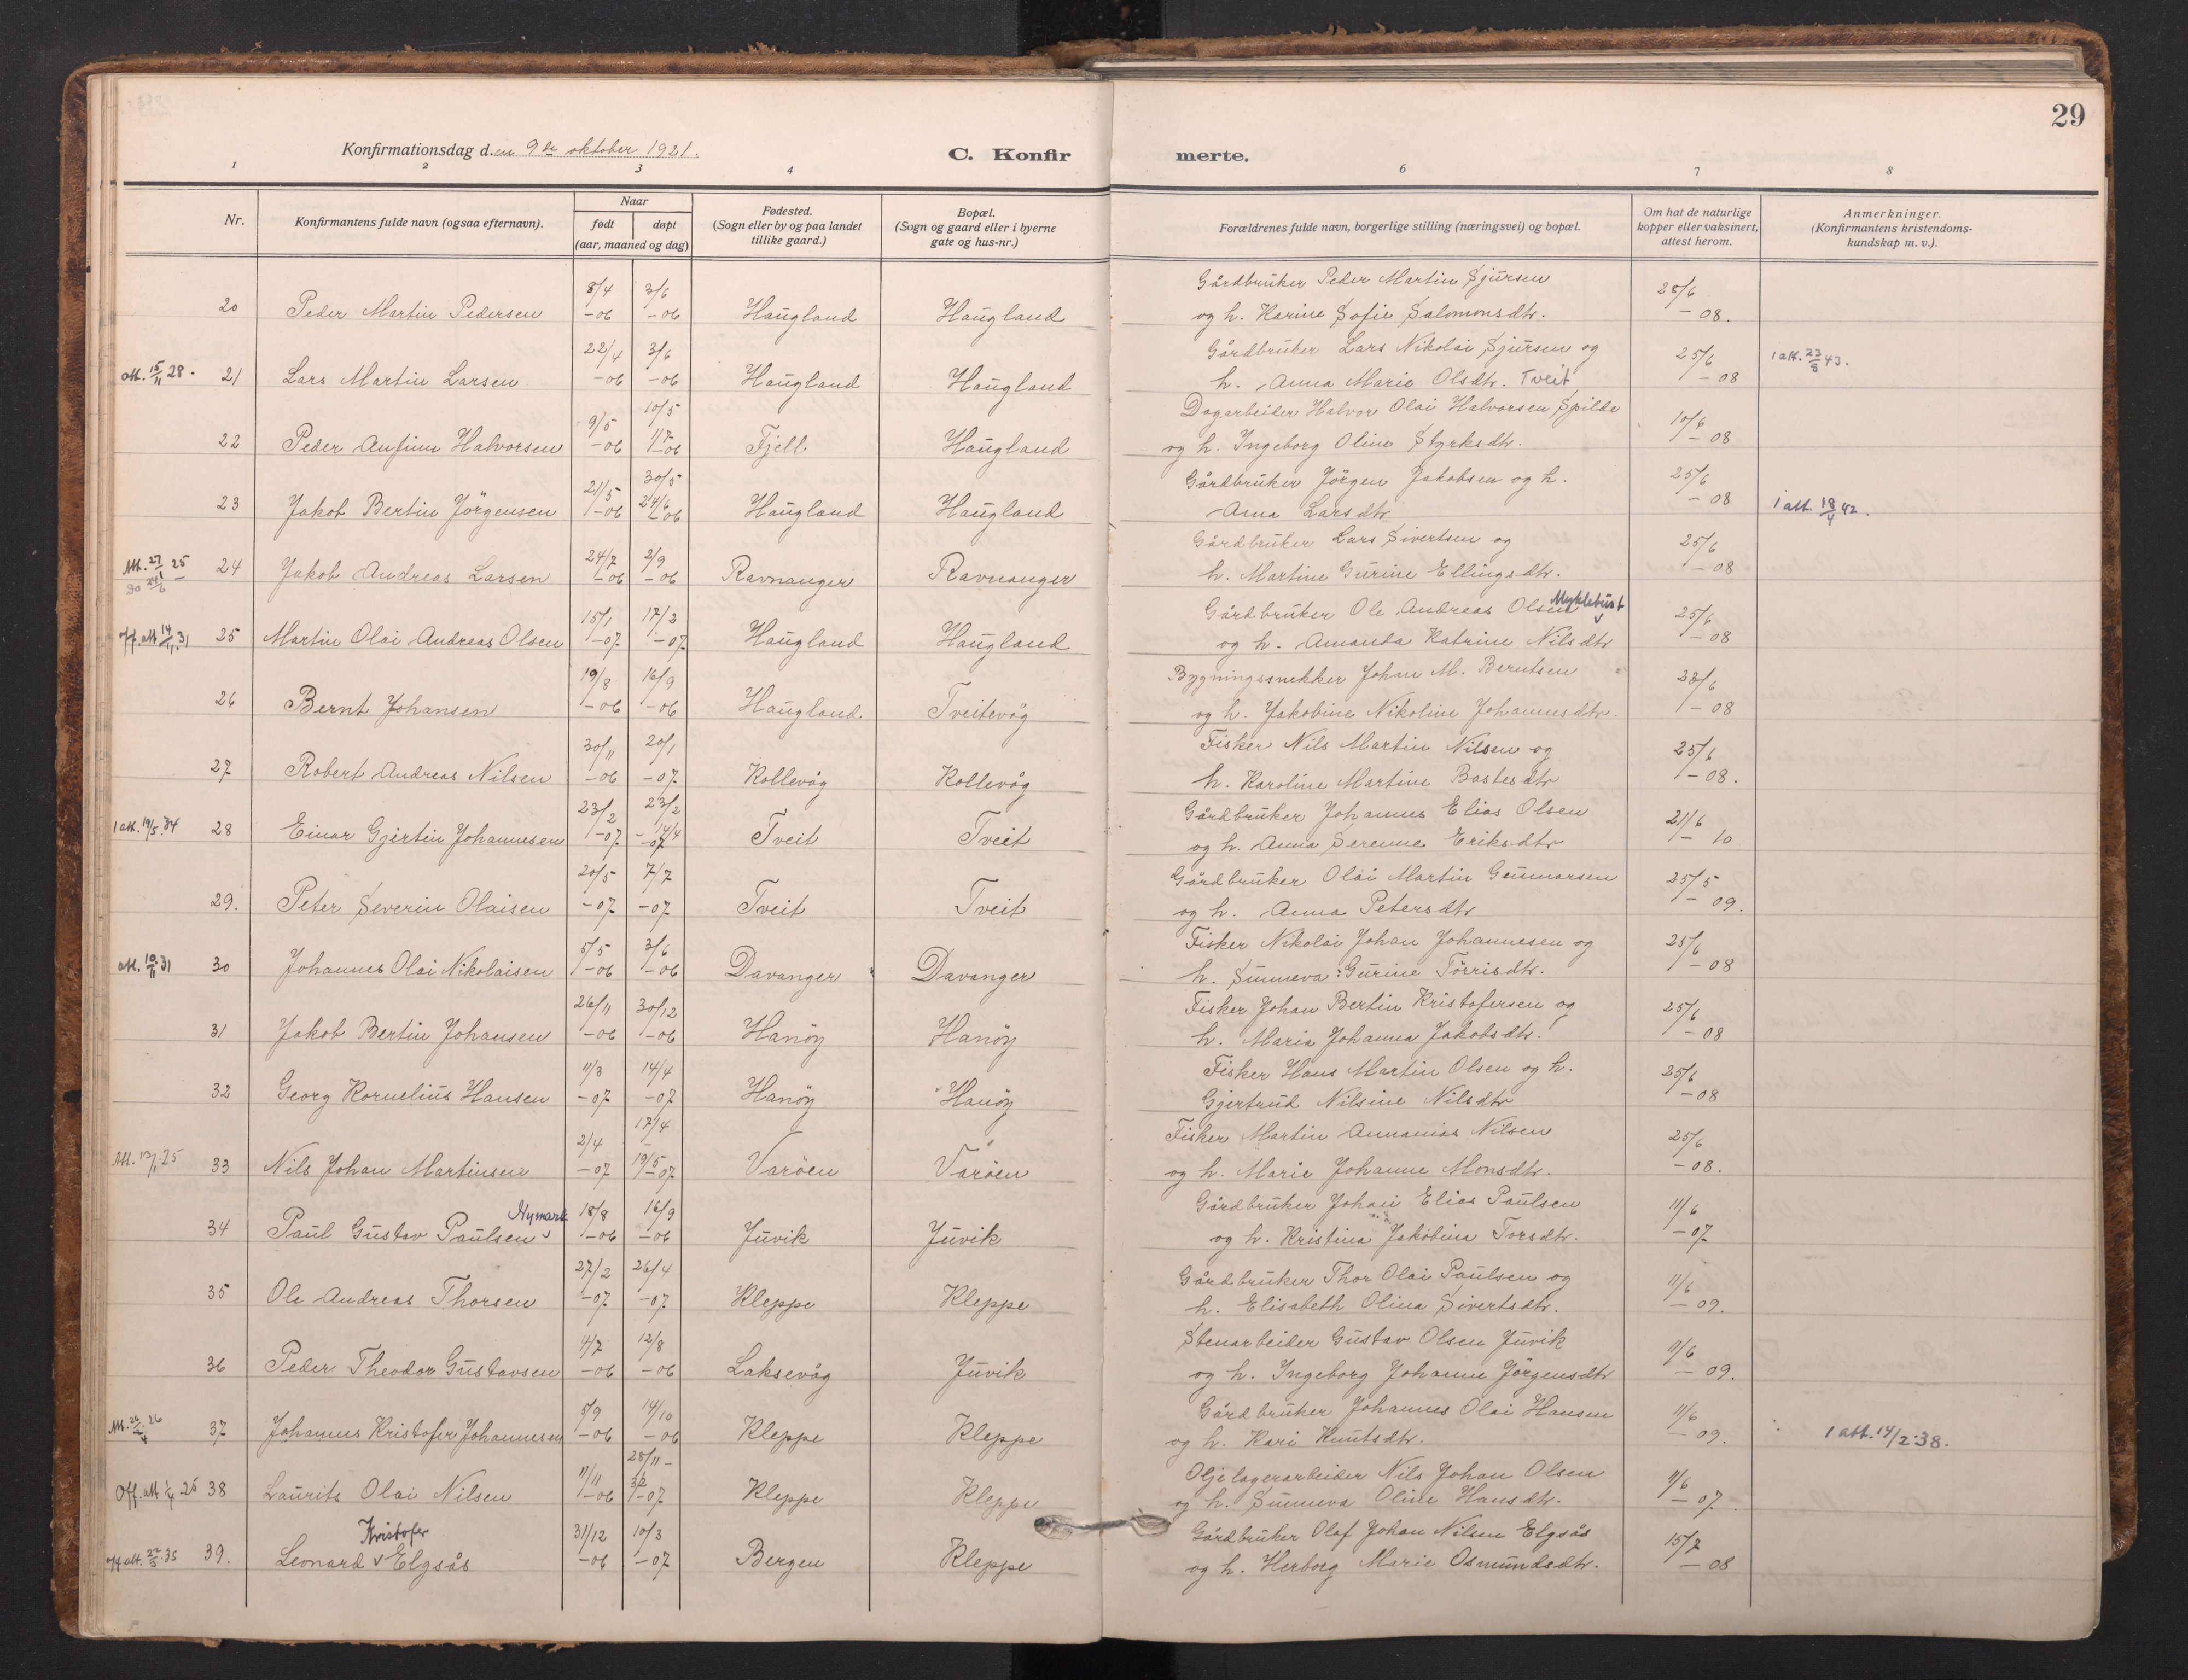 29
Konfirmationsdag d. en 9de oktober 1921. C. Konfir merte.
1 2 3 4 6 7 8
Nr. Konfirmantens fulde navn (ogsaa efternavn). Naar født døpt (aar, maaned og dag) Fødested. (Sogn eller by og paa landet tillike gaard.) Bopæl. (Sogn og gaard eller i byerne gate og hus-nr.) Forældrenes fulde navn, borgerlige stilling (næringsvei) og bopæl. Om hat de naturlige kopper eller vaksinert, attest herom. Anmerkninger. (Konfirmantens kristendomskundskap m. v.).
8/4 3/6 Gårdbruker Peder Martin Sjursen 25/6
20 Peder Martin Pedersen -06 -06 Haugland Haugland og h. Karine Sofie Salomonsdtr. -08.
22/4 3/6 Gårdbruker Lars Nikolai Sjursen og 25/6 1 att. 23/8 43.
att. 15/11 28. 21 Lars Martin Larsen -06 -06 Haugland Haugland h. Anna Marie Olsdtr. Tveit -08
9/5 10/5 Dagarbeider Halvor Olai Halvorsen Spilde 10/6
22 Peder Anfinn Halvorsen -06 1/7 -06 Fjell Haugland og h. Ingeborg Oline Styrksdtr. -08
21/5 30/5 Gårdbruker Jörgen Jakobsen og h. 25/6
23 Jakob Bertin Jörgensen -06 24/6 -06 Haugland Haugland Anna Larsdtr -08 1 att. 18/4 42.
24/7 2/9 Gårdbruker Lars Sivertsen og 25/6
Att. 27/1 25 24 Jakob Andreas Larsen -06 -06 Ravnanger Ravnanger h. Martine Gurine Ellingsdtr. -08
15/1 17/3 Gårdbruker Ole Andreas Olsen Myklebust 25/6
Off. att 14/11. 31 25 Martin Olai Andreas Olsen -07 -07 Haugland Haugland og h. Amanda Katrine Nilsdtr -08
19/8 16/9 Bygningssnekker Johan M. Berntsen 23/6
26 Bernt Johansen -06 -06 Haugland Tveitevåg og h. Jakobine Nikoline Johannesdtr. -08
30/11 20/1 Fisker Nils Martin Nilsen og 25/6
27 Robert Andreas Nilsen -06 -07 Kollevåg Kollevåg h. Karoline Martine Bastesdtr -08.
23/2 23/2 Gårdbruker Johannes Elias Olsen 21/6
1 att. 19/5. 34 28 Einar Gjertin Johannesen -07 -14/4 -07 Tveit Tveit og h. Anna Serenne Eriksdtr - 10
20/5 7/7 Gårdbruker Olai Martin Gunnarsen 25/5
29. Peter Severin Olaisen -07 -07 Tveit Tveit og h. Anna Petersdtr -09.
5/5 3/6 Fisker Nikolai Johan Johannesen og 25/6
att. 10/11. 31 30 Johannes Olai Nikolaisen -06 -06 Davanger Davanger h. Sunneva Gurine Törrisdtr. -08
26/11 30/12 Fisker Johan Bertin Kristofersen og 25/6
31 Jakob Bertin Johansen -06 -06 Hanöy Hanöy h. Maria Johanna Jakobsdtr. -08
11/3 14/4 Fisker Hans Martin Olsen og h. 25/6
32 Georg Kornelius Hansen -07 -07 Hanöy Hanöy Gjertrud Nilsine Nilsdtr -08
2/4 17/4 Fisker Martin Annanias Nilsen 25/6
Att. 13/1. 25 33 Nils Johan Martinsen -07 19/5 -07 Varöen Varöen og h. Marie Johanne Monsdtr. -08.
Nymark 18/8 16/9 Gårdbruker Johan Elias Paulsen 11/6
34 Paul Gustav Paulsen -06 -06 Juvik Juvik og h. Kristina Jakobina Torsdtr. -07
27/2 26/4 Gårdbruker Thor Olai Paulsen og 11/6
35 Ole Andreas Thorsen -07 -07 Kleppe Kleppe h. Elisabeth Olina Sivertsdtr. -09.
4/7 12/8 Stenarbeider Gustav Olsen Juvik 11/6
36 Peder Theodor Gustavsen -06 -06 Laksevåg Juvik og h. Ingeborg Johanne Jörgensdtr -09.
5/9 14/10 Gårdbruker Johannes Olai Hansen 11/6
Att. 26/4. 26 37 Johannes Kristofer Johannesen -06 -06 Kleppe Kleppe og h. Kari Knutsdtr. -09. 1 att. 14/2.38.
11/11 28/11 - Oljelagerarbeider Nils Johan Olsen 11/6
Off. att 1/4 25 38 Laurits Olai Nilsen -06 -07 Kleppe Kleppe og h. Sunneva Oline Hansdtr. -07.
Kristofer 31/12 10/3 Gårdbruker Olaf Johan Nilsen Elgsås 15/7
off att. 22/5. 35 39. Leonard v Elgsås -06 -07 Bergen Kleppe og h. Herborg Marie Osmundsdtr. -08